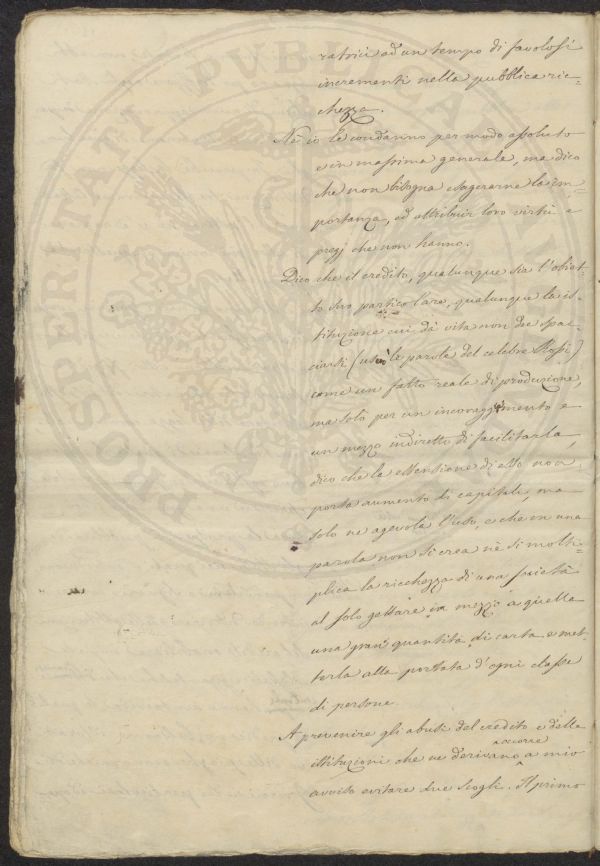 ratrici ad un tempo di favolosi
incrementi nella pubblica ric-
chezza.
Nè io le condanno per modo assoluto
e in massima generale, ma dico
che non bisogna esagerarne la im-
portanza, ed attribuir loro virtù e
pregj che non hanno.
Dico che il credito, qualunque sia l'obiet-
to suo particolare, qualunque la is-
tituzione cui dà vita non dee spac-
ciarsi (usò le parole del celebre Rossi)
come un fatto reale di produzione,
ma solo per un incoraggimento e
un mezzo indiretto di facilitarla,
dico che la estensione di esso non
porta aumento di capitale, ma
solo ne agevola l'uso, e che in una
parola non si crea nè si molti-
plica la ricchezza di una società
al solo gettare in mezzo a quella
una gran quantità di carta e met-
terla alla portata d'ogni classe
di persone.
A prevenire gli abusi del credito e delle
istituzioni che ne derivano occorre a mio
avviso evitare due scogli. Il primo
PROSPERITATI PUBLICAE